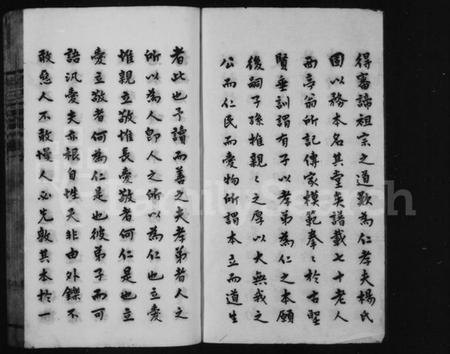 得審諦祖宗之道歟為仁孝夫楊氏
固以務本名其堂矣譜載七十老人
西亭翁所記傳家模範拳〻於古聖
賢垂訓謂有子以孝弟為仁之本願
後嗣子孫推親〻之厚以大無我之
公而仁民而愛物所謂本立而道生
者此也予讀而善之夫孝弟者人之
所以為人即人之所以為仁也立愛
惟親立敬惟長愛敬者何仁是也立
愛立敬者何為仁是也彼弟子而可
語汎愛夫亦根自性天非由外鑠不
敢惡人不敢慢人必先敦其本於一
FamilySearch